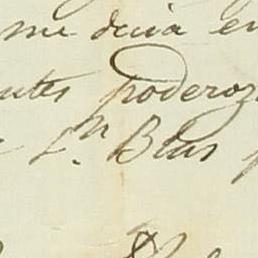 me decia en
antes poderoz
Sn. Blas p